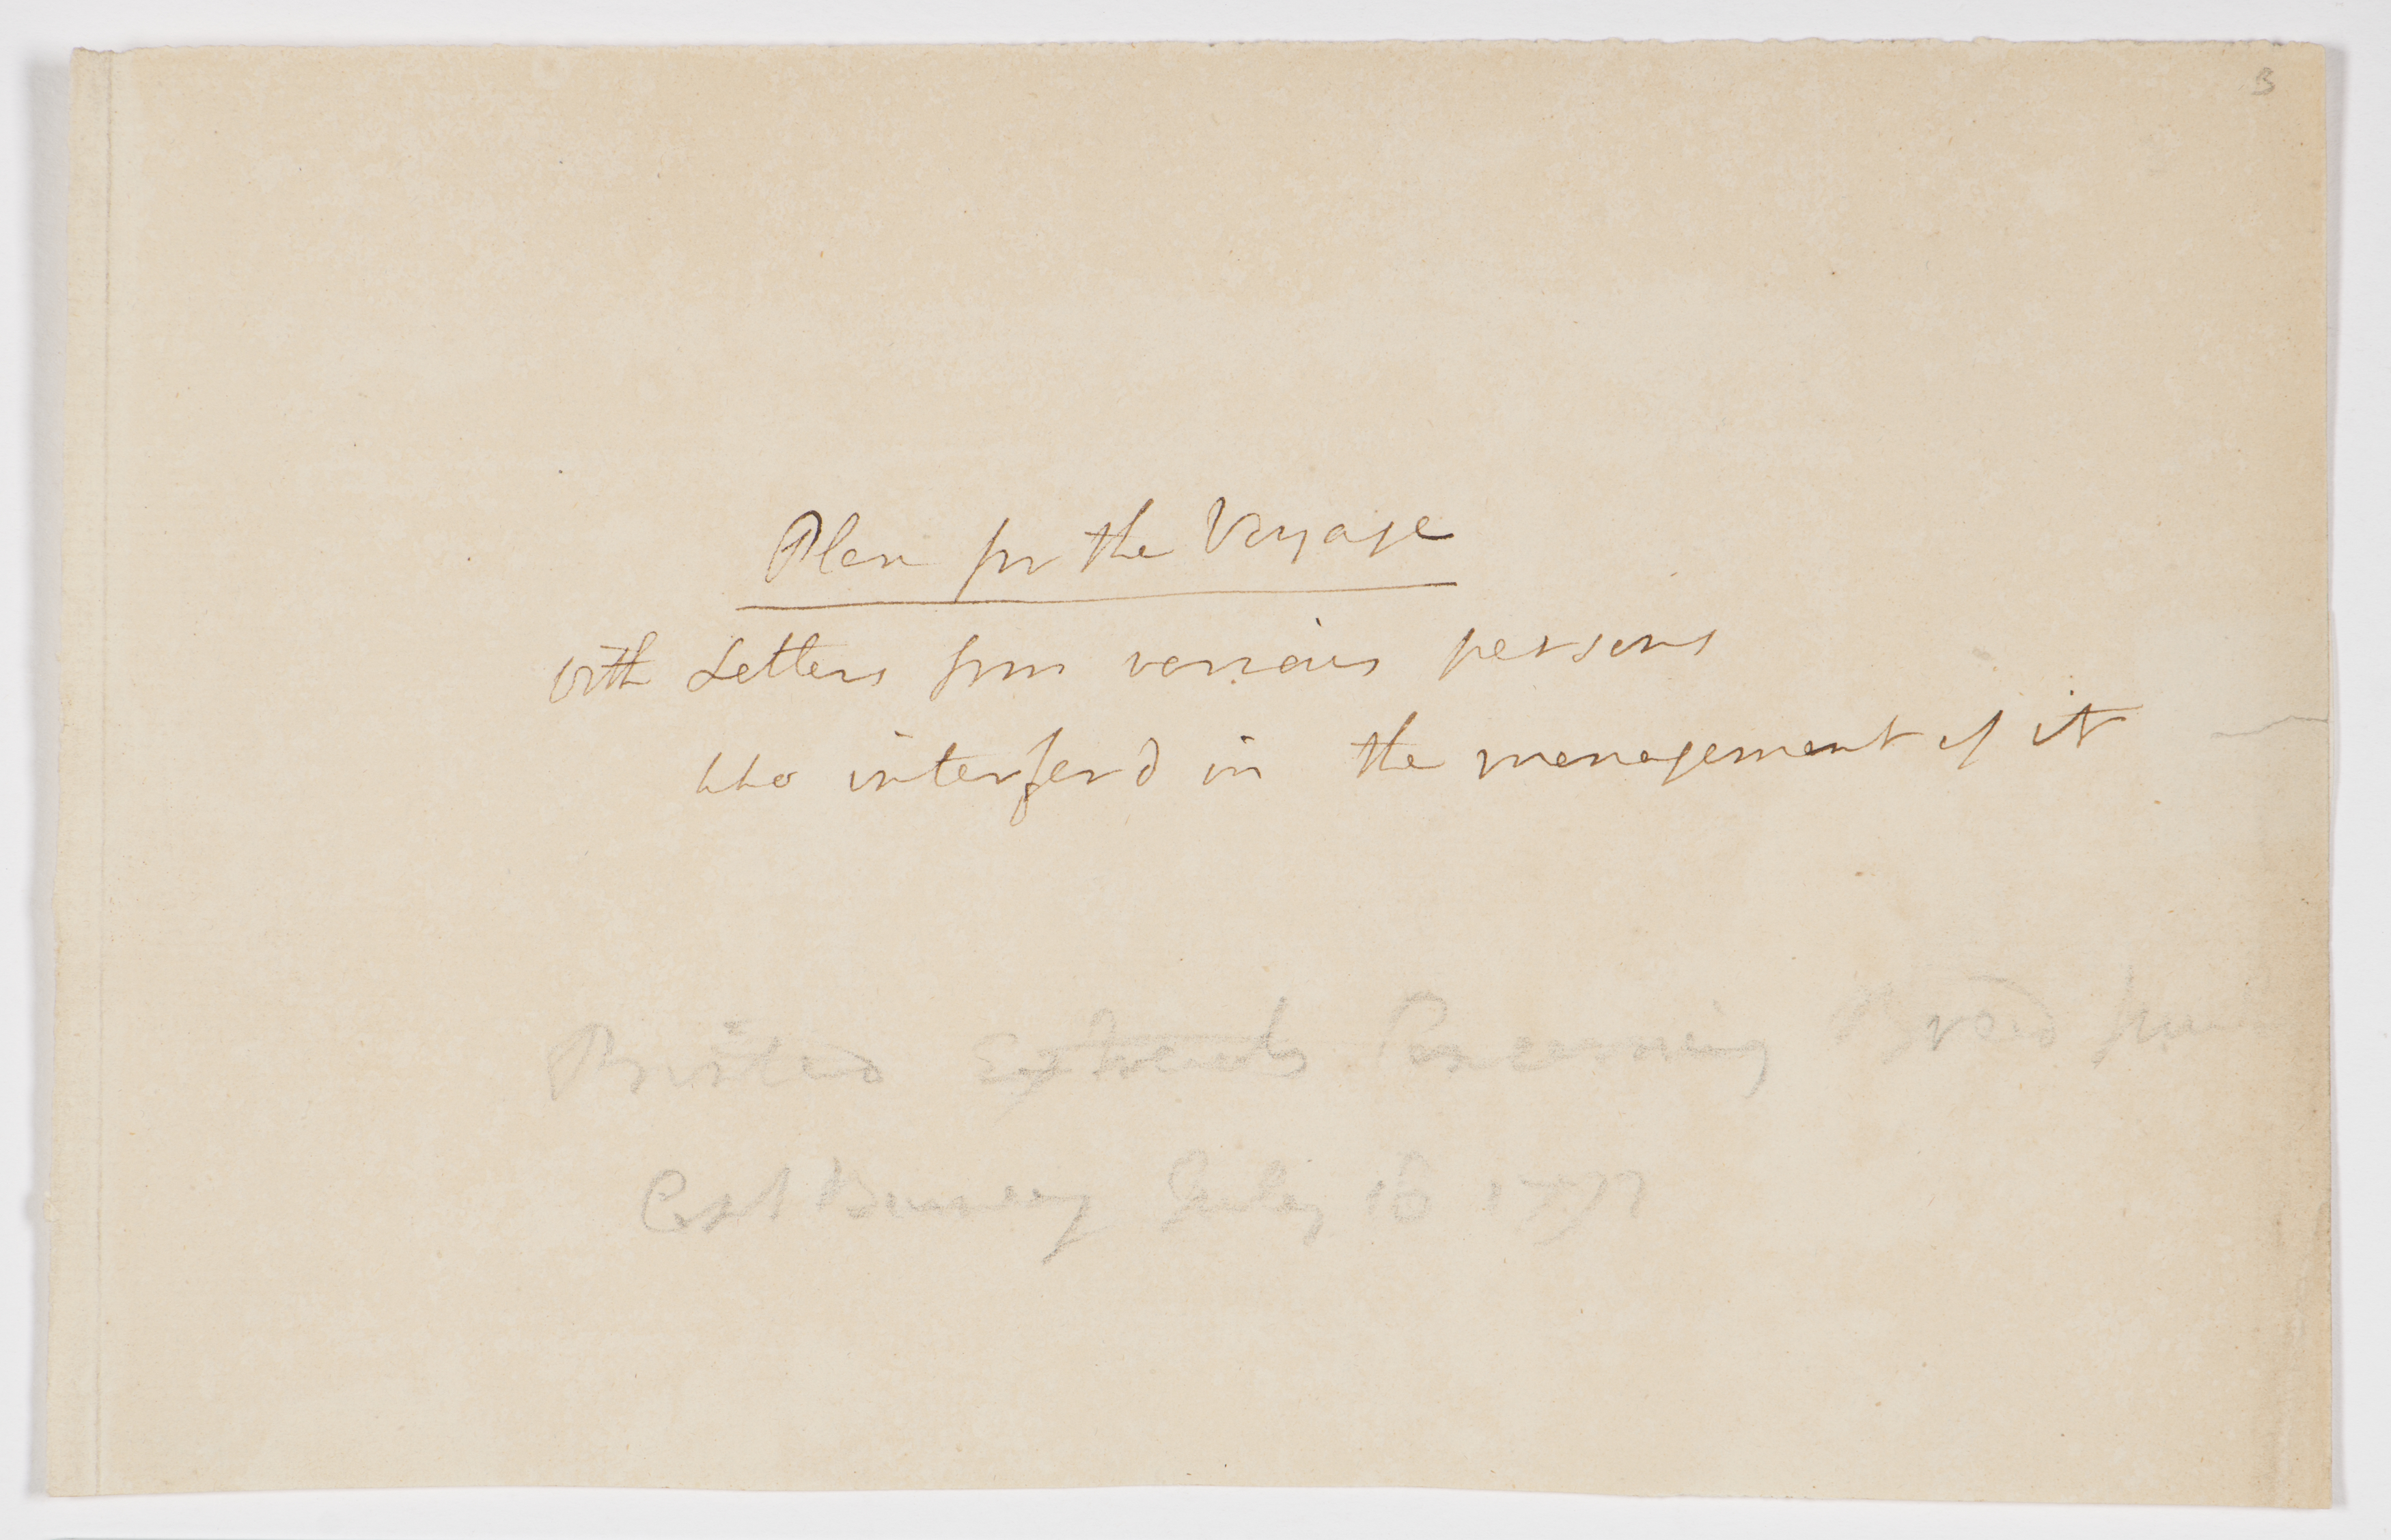 3
Plan for the Voyage
with Letters from various persons
who interferd in the management of it
Printed Extracts Concerning Bread fruit
Capt Burney July 16 1797